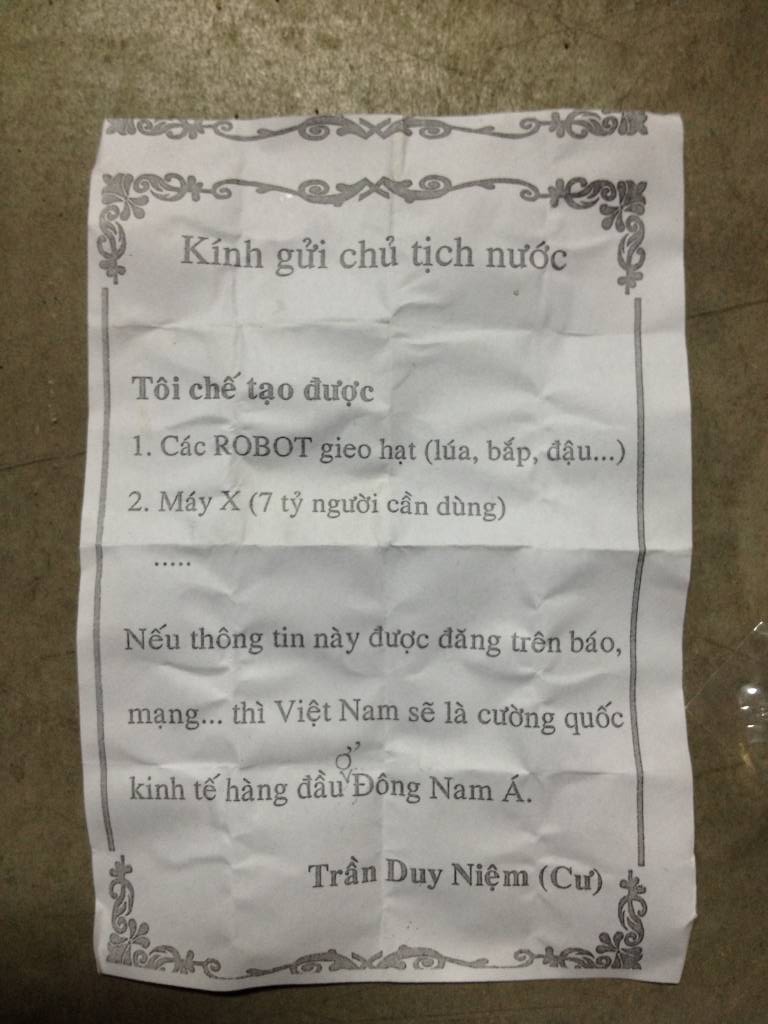 Kính gửi chủ tịch nước
Tôi chế tạo được
1. Các ROBOT gieo hạt (lúa, bắp, đậu...)
2. Máy X (7 tỷ người cần dùng)
.....
Nếu thông tin này được đăng trên báo,
mạng... thì Việt Nam sẽ là cường quốc
kinh tế hàng đầu ở Đông Nam Á.
Trần Duy Niệm (Cư)